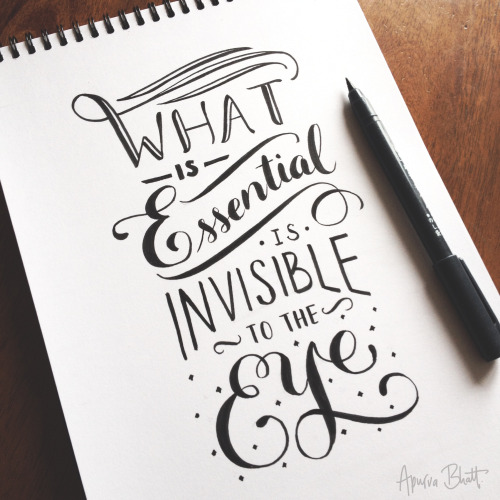 WHAT
IS
Essential
IS
INVISIBLE
TO THE
Eye
Apurva Bhatt